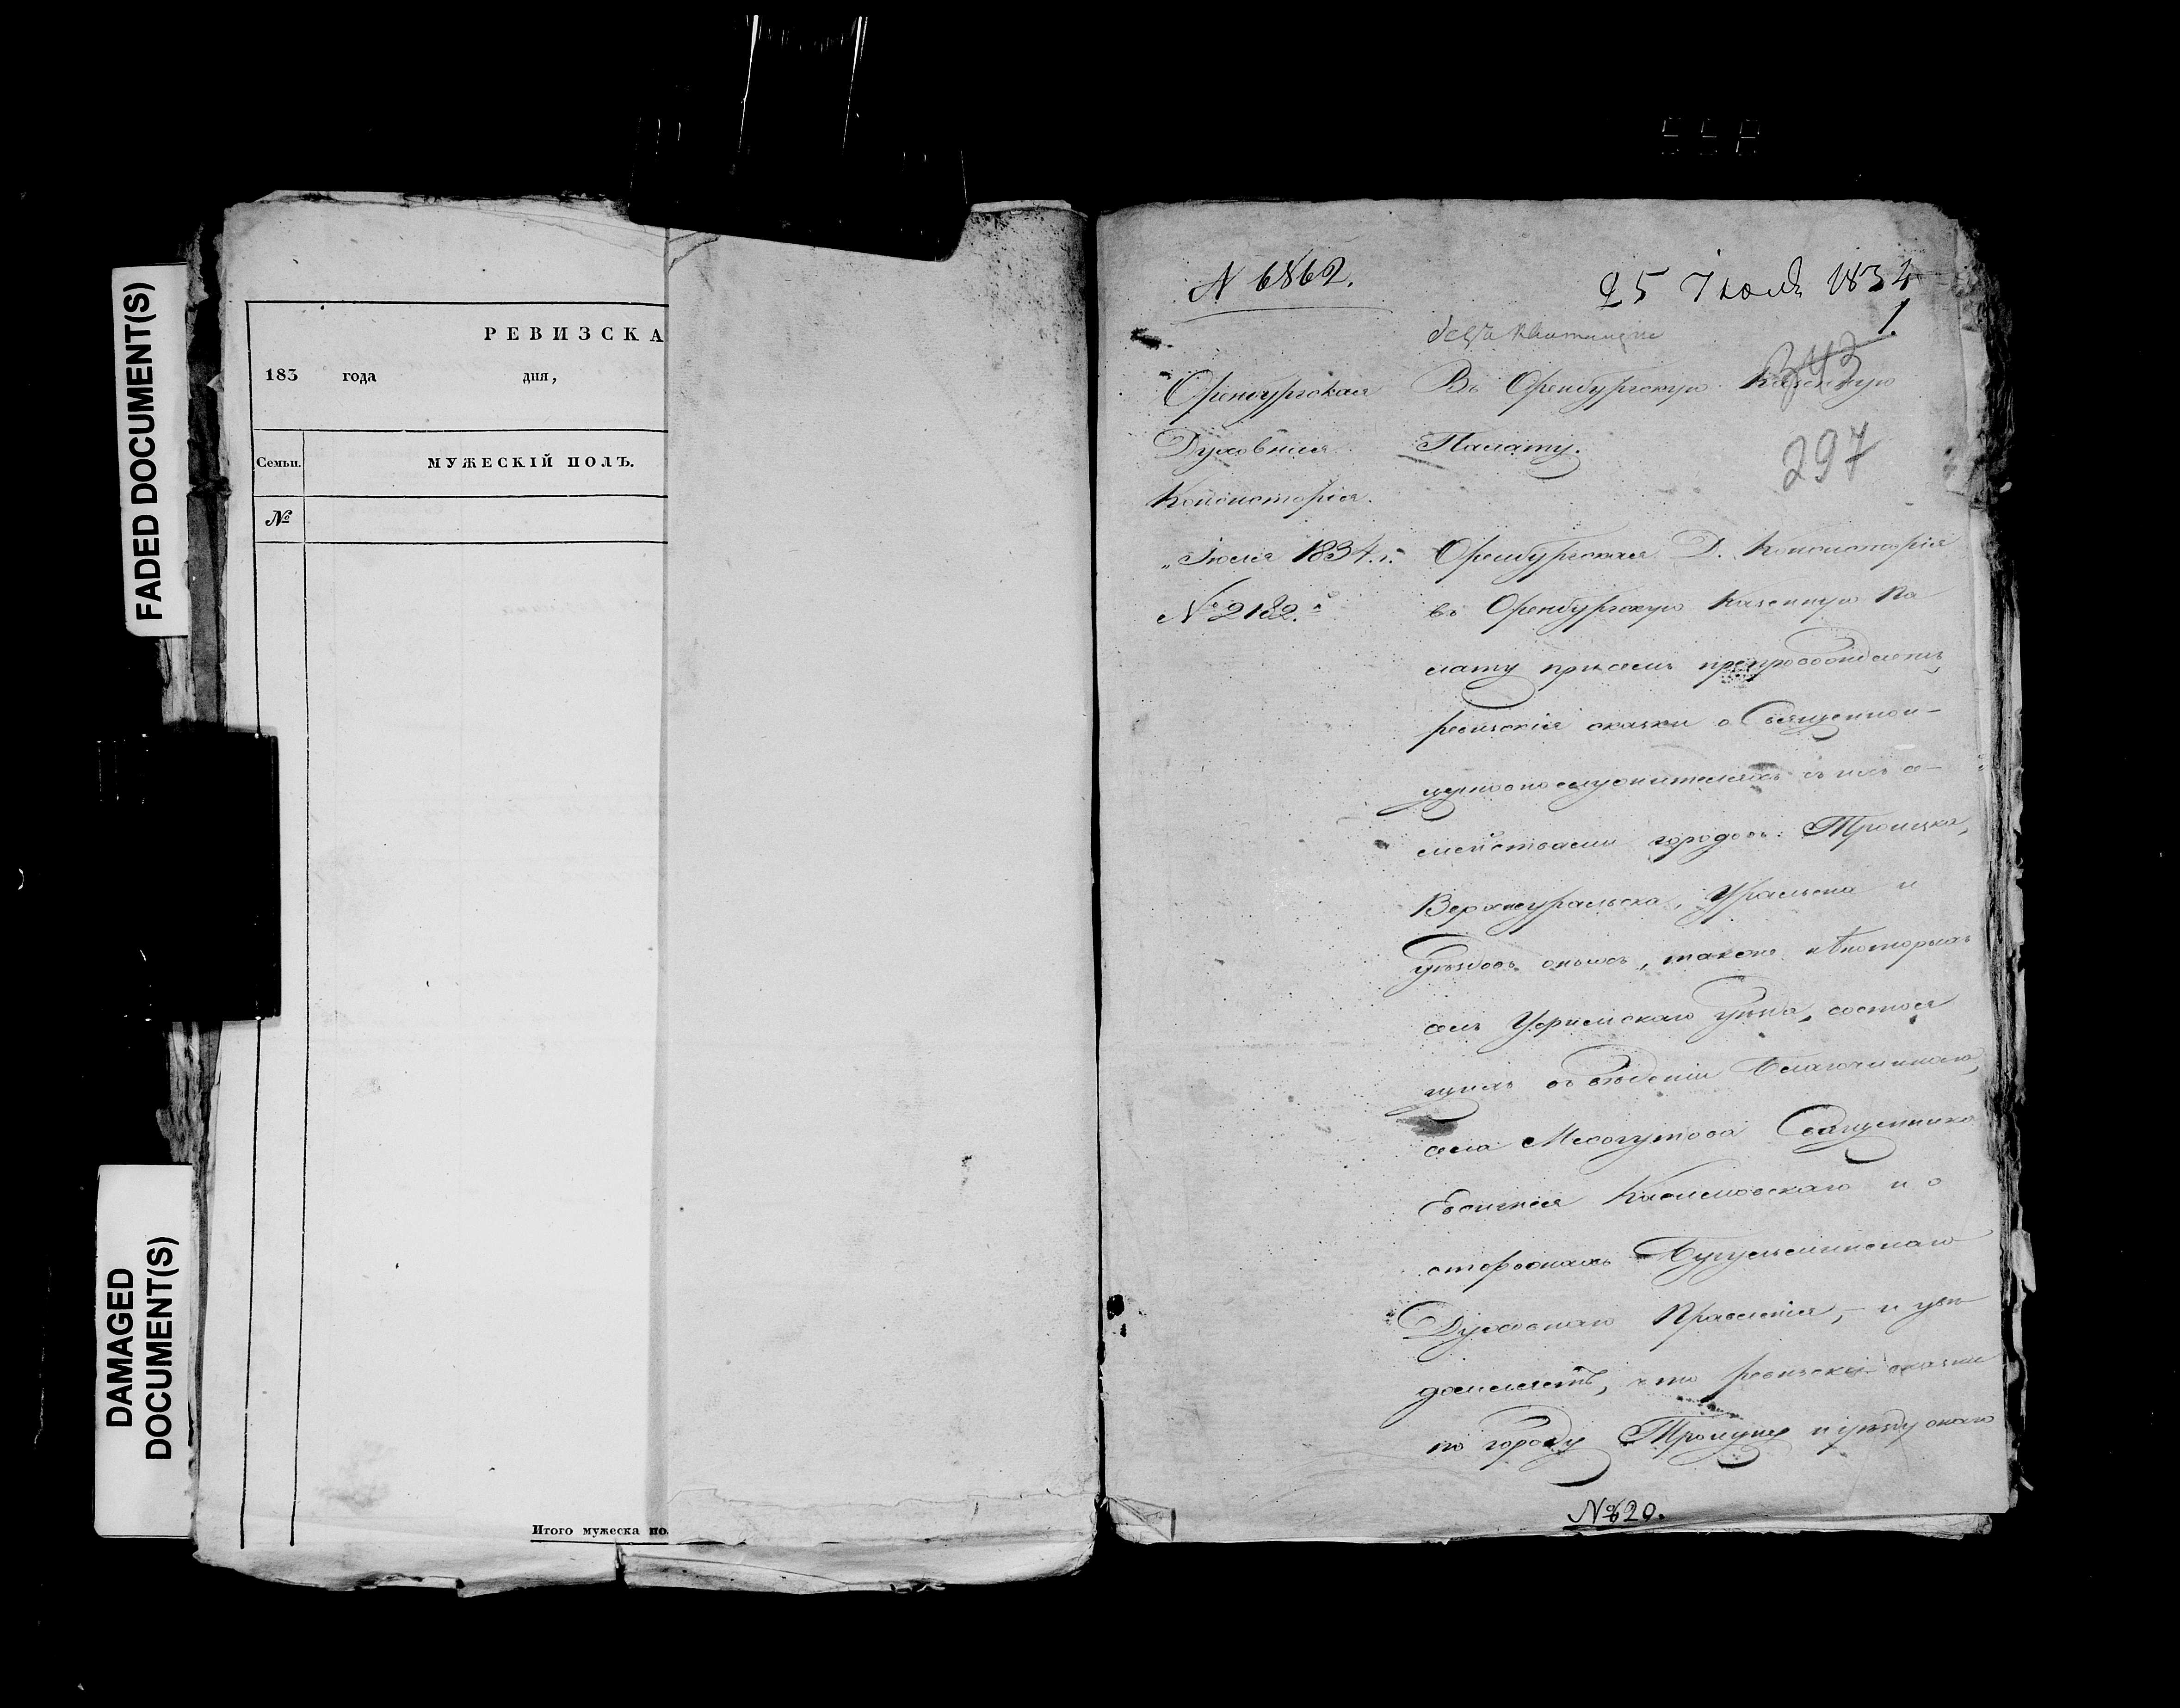 FADED DOCUMENT(S)
DAMAGED
DOCUMENT(S)
РЕВИЗСКА
183 года дня,
Семьи.
МУЖЕСКІЙ ПОЛЪ.
№
Итого мужеска по
N 6862.
25 Июля 1834
1.
343
297
Оренбургская
Духовная
Консисторія.
„ Іюля 1834. г.
№ 2182.
Въ Оренбургскую Казенную
Палату.
Оренбургская Д. Консисторія
въ Оренбургскую Казенную Па
лату при семъ препровождаетъ
ревизскія сказки о Священно и-
церковнослужителяхъ съ ихъ се-
мействами городовъ: Троицка,
Верхнеуральска, Уральска и
уѣздовъ оныхъ, также нѣкоторыхъ
селъ Уфимскаго уѣзда, состоя
щихъ въ вѣденіи Благочиннаго,
села Священника
Евсигнея Касимовскаго и о
сторожахъ Бугульминскаго
Духовнаго Правленія, - и увѣ
домляетъ, что ревизскія сказки
по городу Троицку и уѣзду онаго
№ 620.